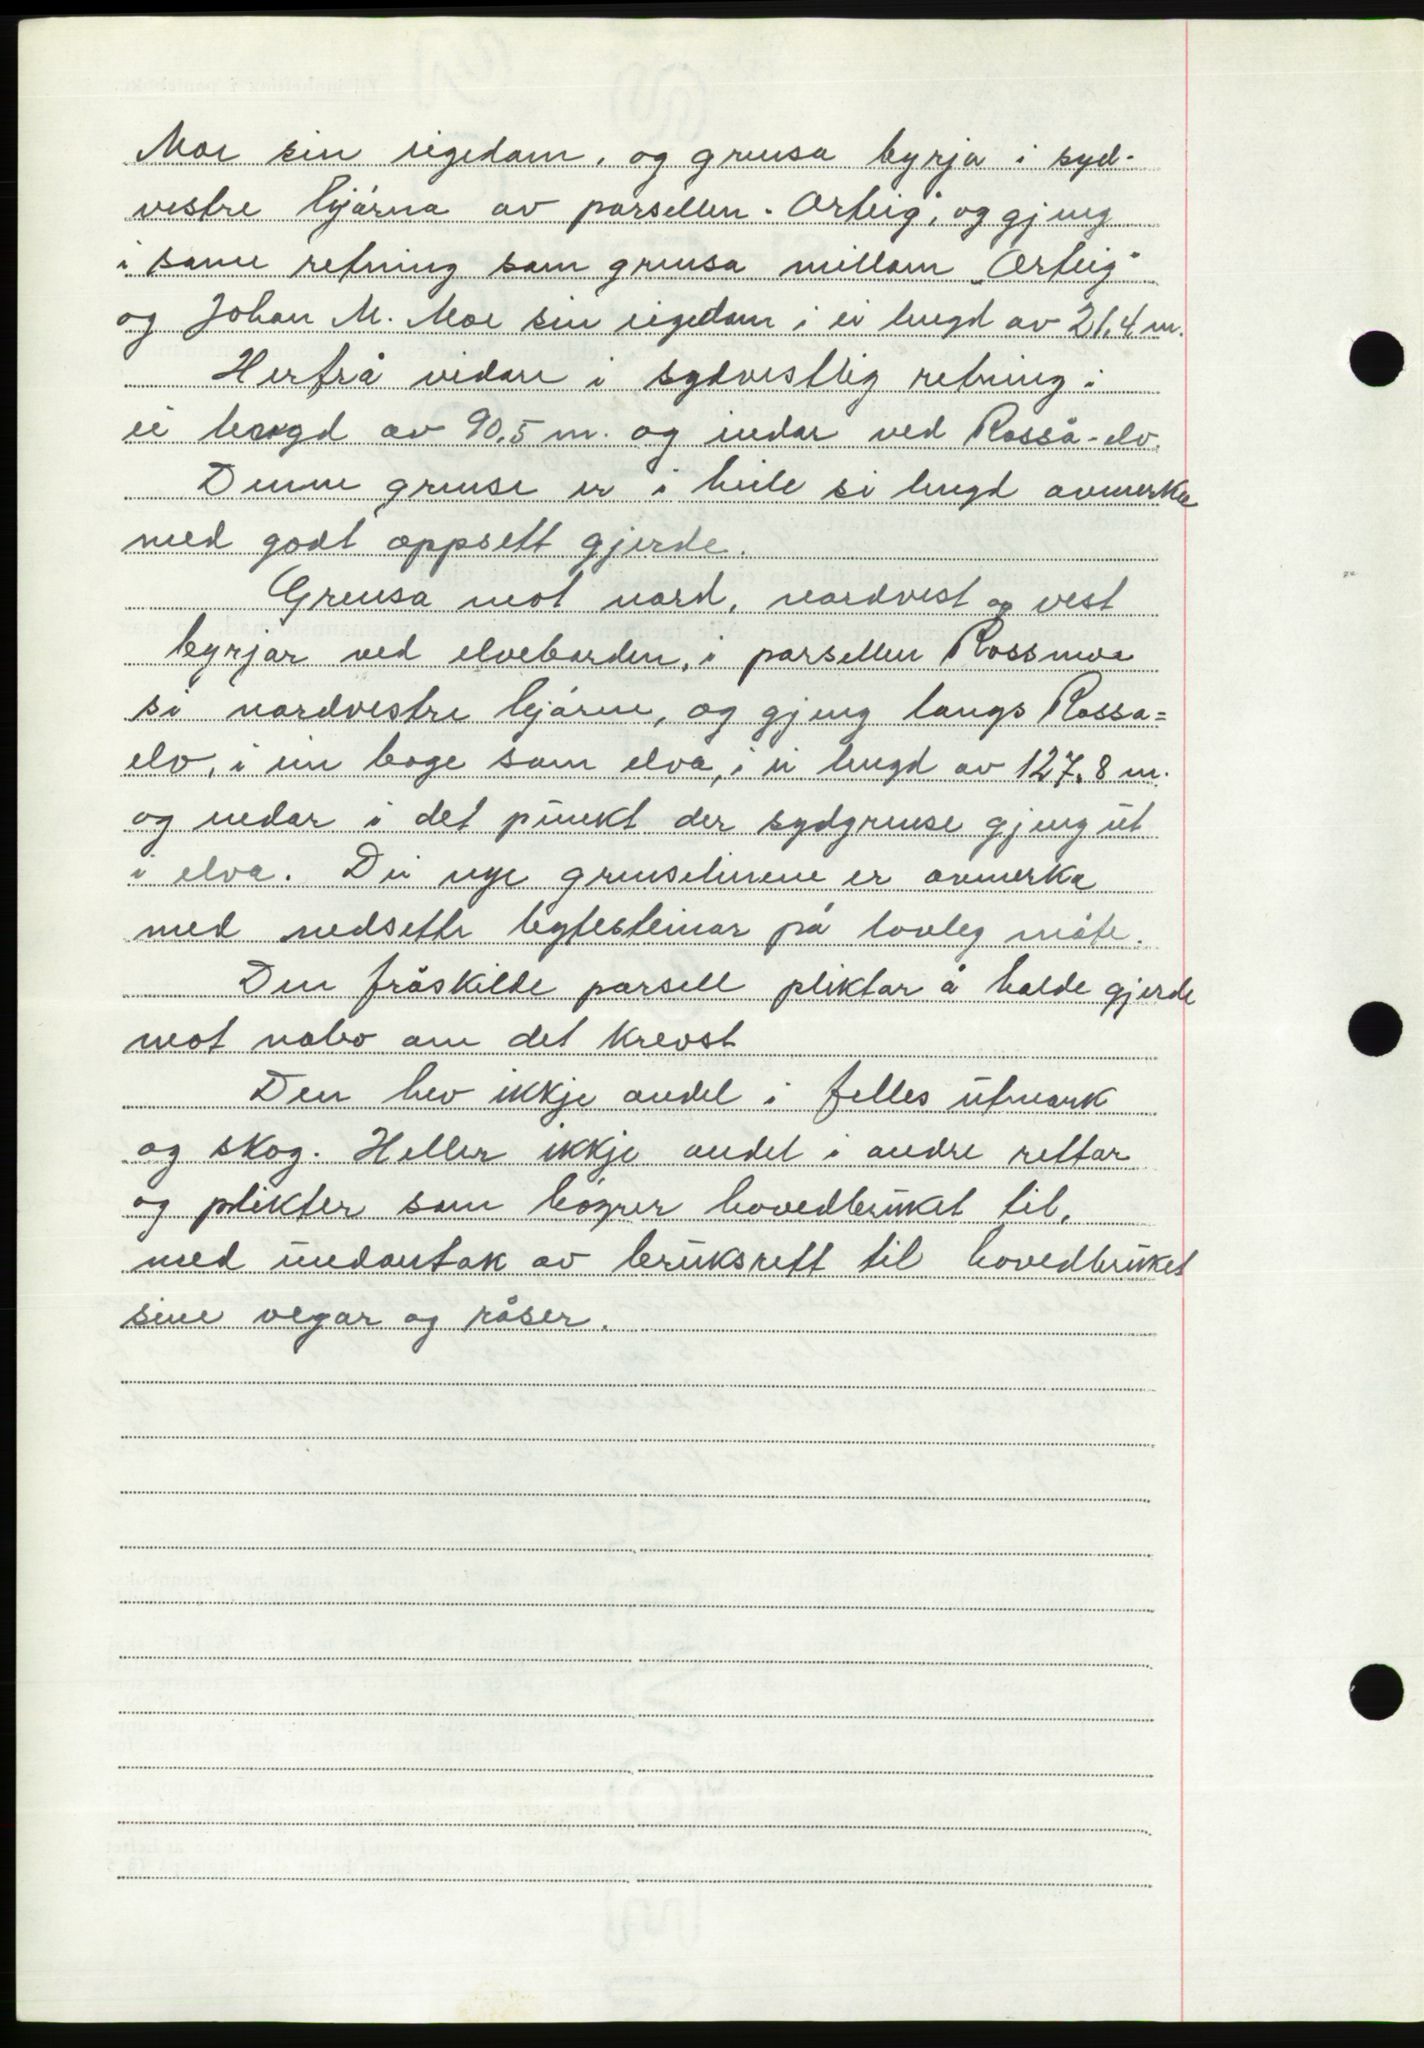 Moe sin eigedom, og grensa byrja i syd-
vestre hjørna av parsellen "Orteig", og gjeng
i same retning som grensa millom "Orteig"
og Johan M. Moe sin eigedom i ei lengd av 21,4 m.
Herfrå vidare i sydvestleg retning i
ei lengd av 90,5 m. og endar ved Rosså-elv.
Denne grense er i heile si lengd avmerka
med godt oppsett gjerde.
Grensa mot nord, nordvest og vest
byrjar ved elvebarden, i parsellen Rossmoa
si nordvestre hjørne, og gjeng langs Rossa=
elv, i ein boge som elva, i ei lengd av 127,8 m.
og endar i det punkt der sydgrense gjeng ut
i elva. Dei nye grenselinene er avmerka
med nedsette bytesteinar på lovleg måte.
Den fråskilde parsell pliktar å halde gjerde
mot nabo om det krevst
Den hev ikkje andel i felles utmark
og skog. Heller ikkje andel i andre rettar
og plikter som höyrer hovedbruket til,
med undantak av bruksrett til hovedbruket
sine vegar og råser.